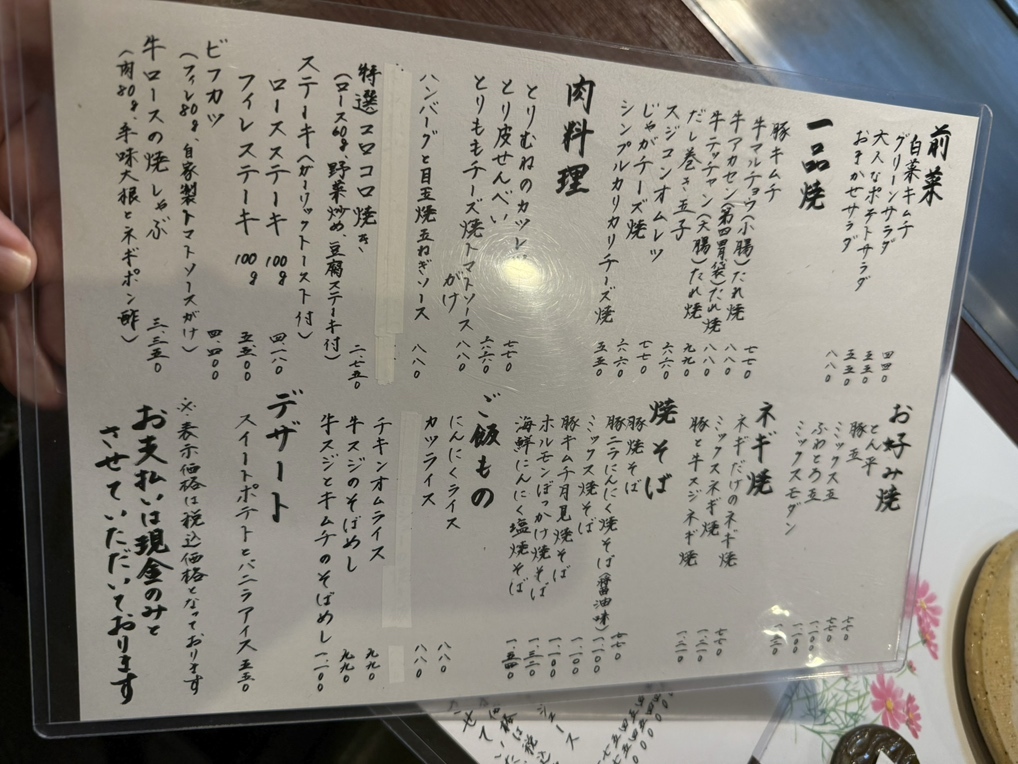 前菜
白菜キムチ 四四〇
グリーンサラダ 五五〇
大人なポテトサラダ 五五〇
おまかせサラダ 八八〇
一品焼
豚キムチ 七七〇
牛マルチョウ(小腸)たれ焼 八八〇
牛アカセン(第四胃袋)だれ焼 八八〇
牛テッチャン(大腸)だれ焼 九九〇
だし巻き玉子 六六〇
スジコンオムレツ 七七〇
じゃがチーズ焼 六六〇
シンプルカリカリチーズ焼 五五〇
肉料理
とりむねのカツレ 七七〇
とり皮せんべい 六六〇
とりももチーズ焼トマトソースがけ 八八〇
ハンバーグと目玉焼玉ねぎソース 八八〇
特選コロコロ焼き 二、七五〇
(ロース60g、野菜炒め、豆腐ステーキ付)
ステーキ(ガーリックトースト付)
ロースステーキ 100g 四、一八〇
フィレステーキ 100g 五、五〇〇
ビフカツ 四、四〇〇
(フィレ80g、自家製トマトソースがけ)
牛ロースの焼しゃぶ 三、三五〇
(肉80g、辛味大根とネギポン酢)
お好み焼
とん平 七七〇
豚玉 七七〇
ミックス玉 一、一〇〇
ふわとろ玉 一、一〇〇
ミックスモダン
ネギ焼
ネギだけのネギ焼 七七〇
ミックスネギ焼 一、二一〇
豚と牛スジネギ焼 一、二一〇
焼そば
豚焼そば 七七〇
豚ニラにんにく焼そば(醤油味) 一、一〇〇
ミックス焼そば 一、一〇〇
豚キムチ月見焼そば 一、一〇〇
ホルモンぼっかけ焼そば 一、三二〇
海鮮にんにく塩焼そば 一、五四〇
ご飯もの
にんにくライス 八八〇
カツライス 八八〇
チキンオムライス 九九〇
牛スジのそばめし 九九〇
牛スジとキムチのそばめし 一、一〇〇
デザート
スイートポテトとバニラアイス 五五〇
※表示価格は税込価格となっております
お支払いは現金のみと
させていただいております